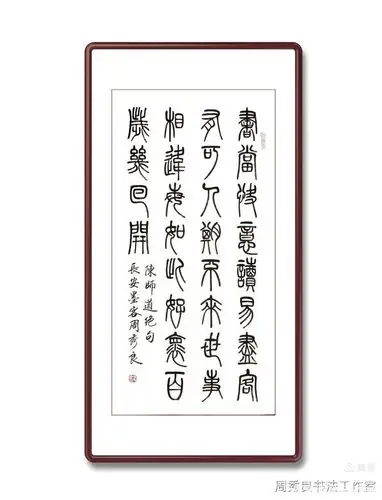 書當快意讀易盡客
有可人期不來世事
相違每如此好褱百
歲幾回開
陳師道絕句
長安墨客周秀良
周秀良书法工作室